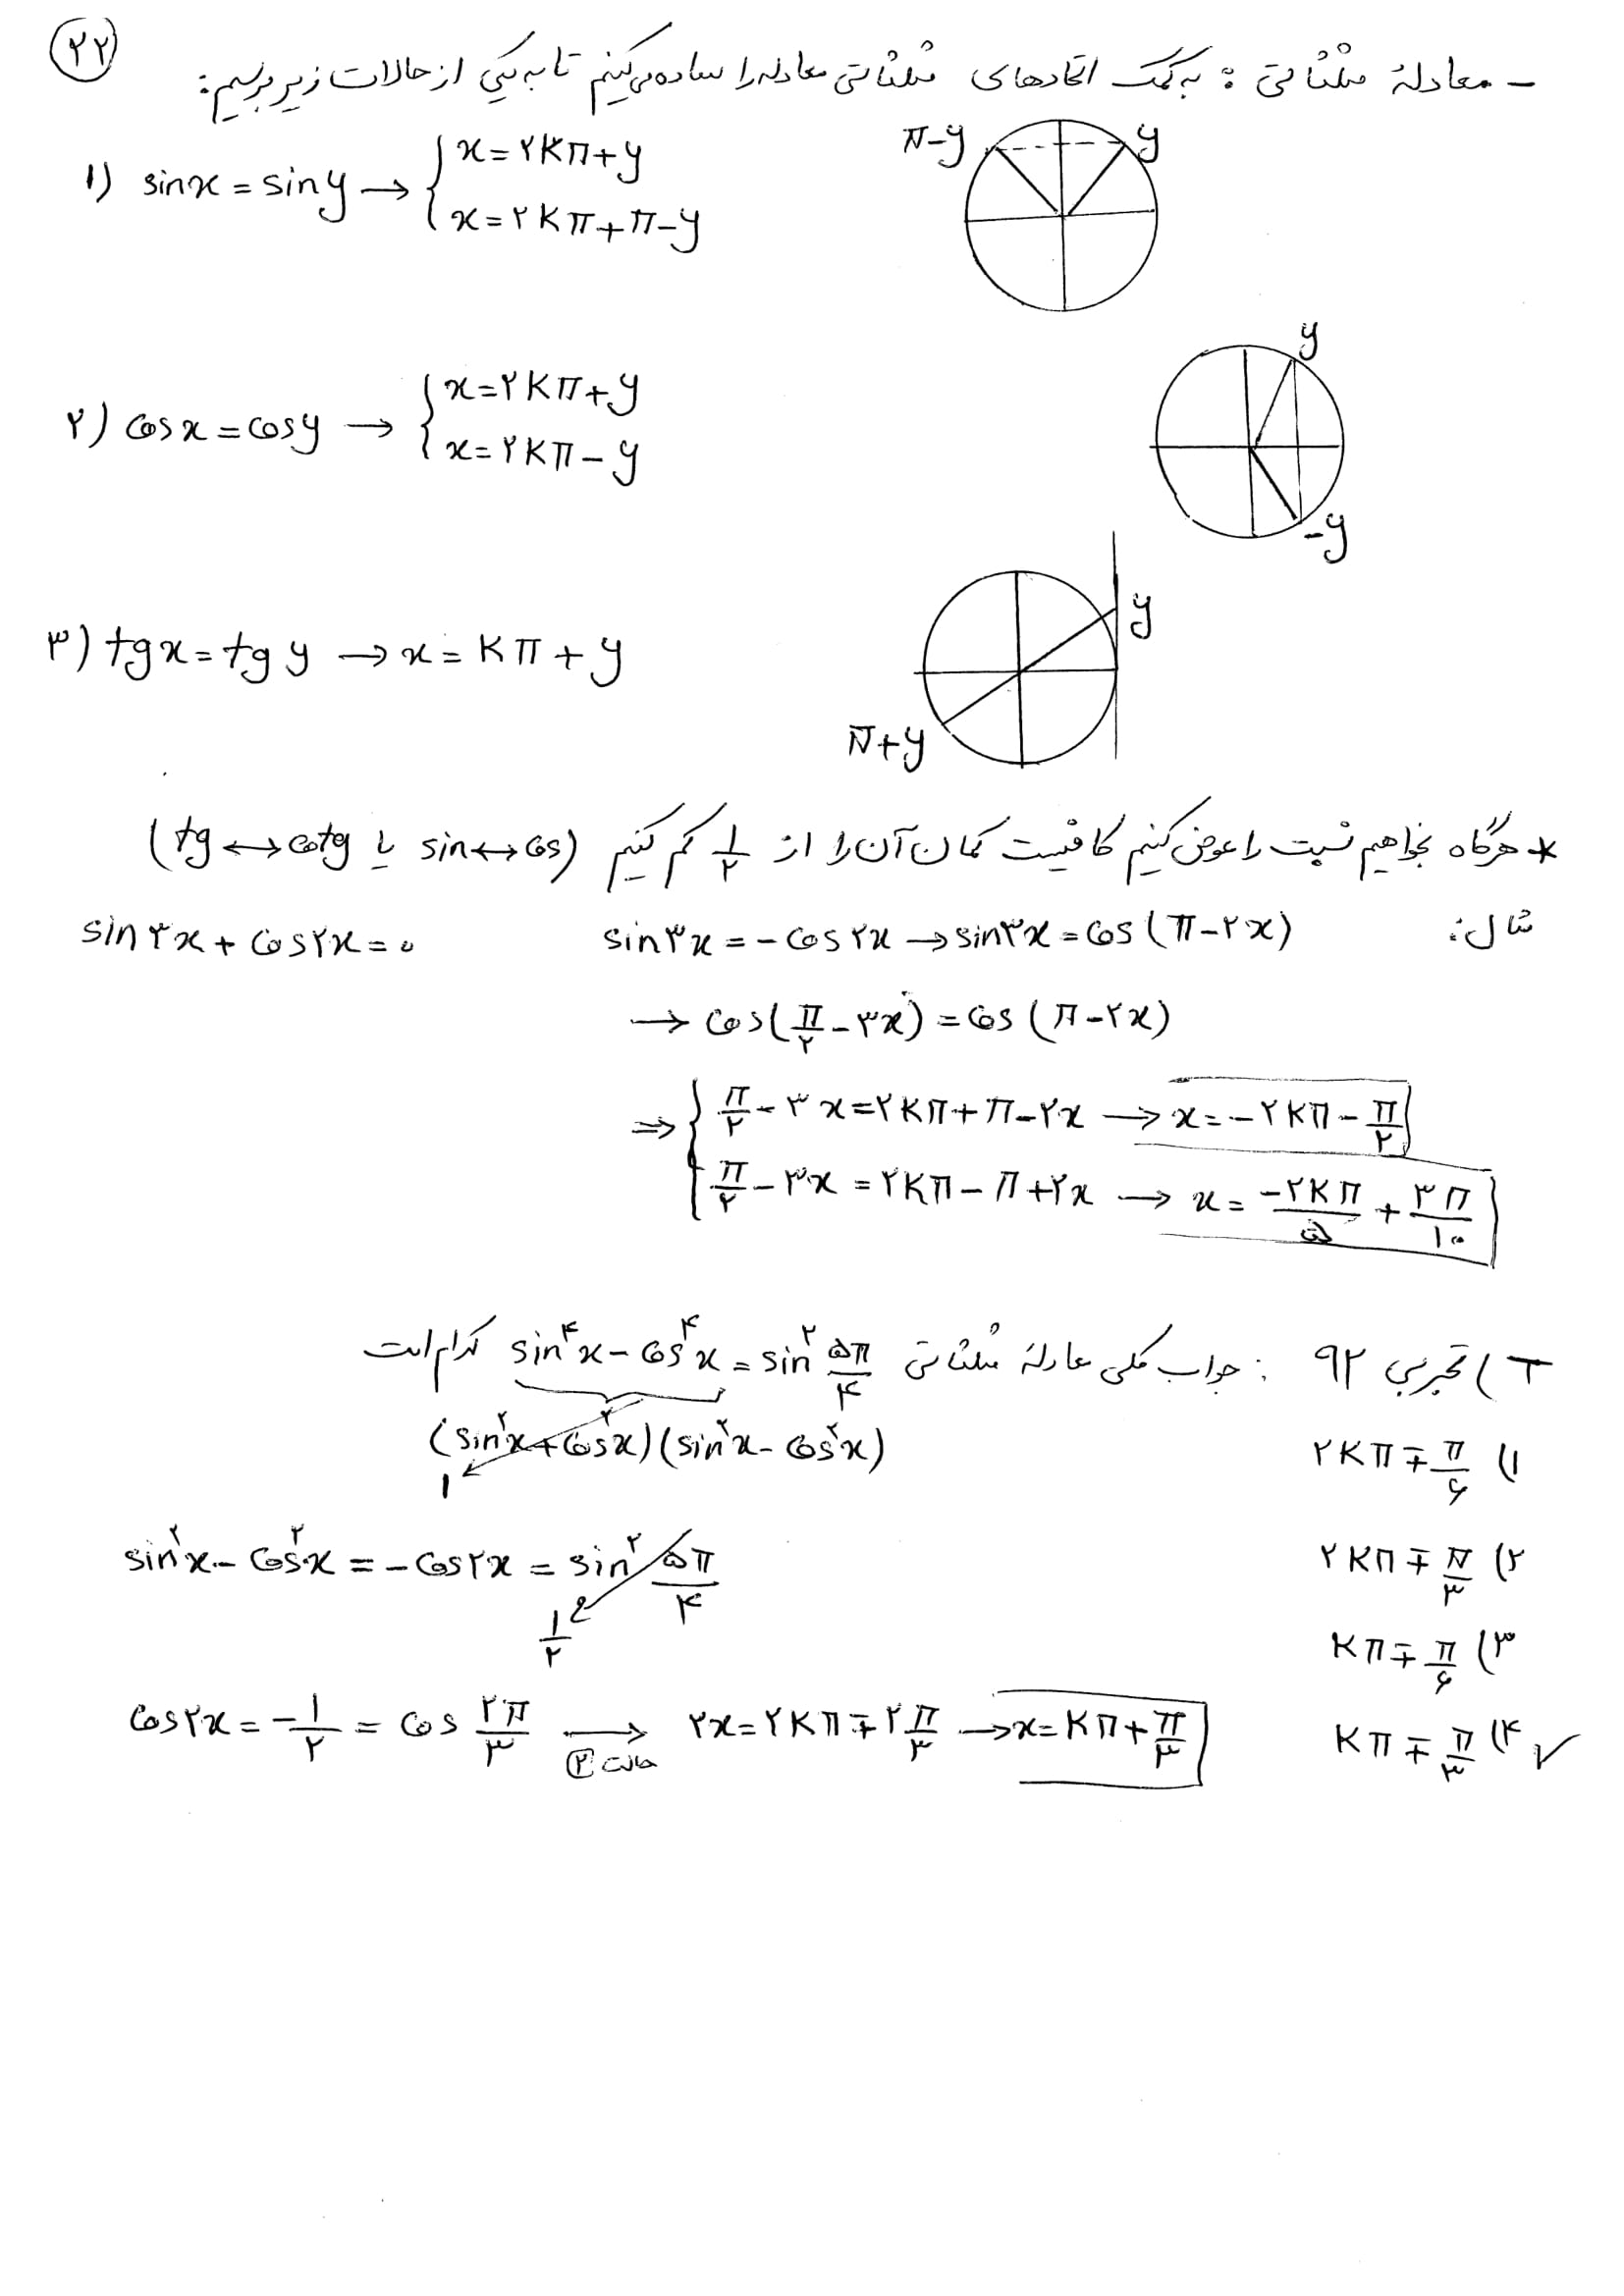 ۲۲
- معادلهٔ مثلثاتی : به کمک اتحادهای مثلثاتی معادله را ساده می‌کنیم تا به یکی از حالات زیر برسیم:
۱) sinx = siny → { x = ۲kπ + y
x = ۲kπ + π - y
π-y y
۲) cosx = cosy → { x = ۲kπ + y
x = ۲kπ - y
y
-y
۳) tgx = tgy → x = kπ + y
y
π+y
* هرگاه بخواهیم نسبت را عوض کنیم کافیست کمان آن را از ۱/۲ کم کنیم (sin↔cos یا tg↔cotg)
مثال: sin۳x + cos۲x = ۰ sin۳x = -cos۲x → sin۳x = cos(π-۲x)
→ cos(π/۲ - ۳x) = cos(π-۲x)
⇒ { π/۲ - ۳x = ۲kπ + π - ۲x → x = -۲kπ - π/۲
π/۲ - ۳x = ۲kπ - π + ۲x → x = -۲kπ/۵ + ۳π/۱۰
T) تجربی ۹۲ : جواب کلی معادلهٔ مثلثاتی sin⁴x - cos⁴x = sin² ۵π/۴ کدام است
(sin²x + cos²x)(sin²x - cos²x)
۱
۱) ۲kπ ∓ π/۶
sin²x - cos²x = -cos۲x = sin² ۵π/۴
۱/۲
۲) ۲kπ ∓ π/۳
۳) kπ ∓ π/۶
cos۲x = -۱/۲ = cos ۲π/۳ → حالت ۲ ۲x = ۲kπ ∓ ۲π/۳ → x = kπ + π/۳
۴) kπ ∓ π/۳ ✓